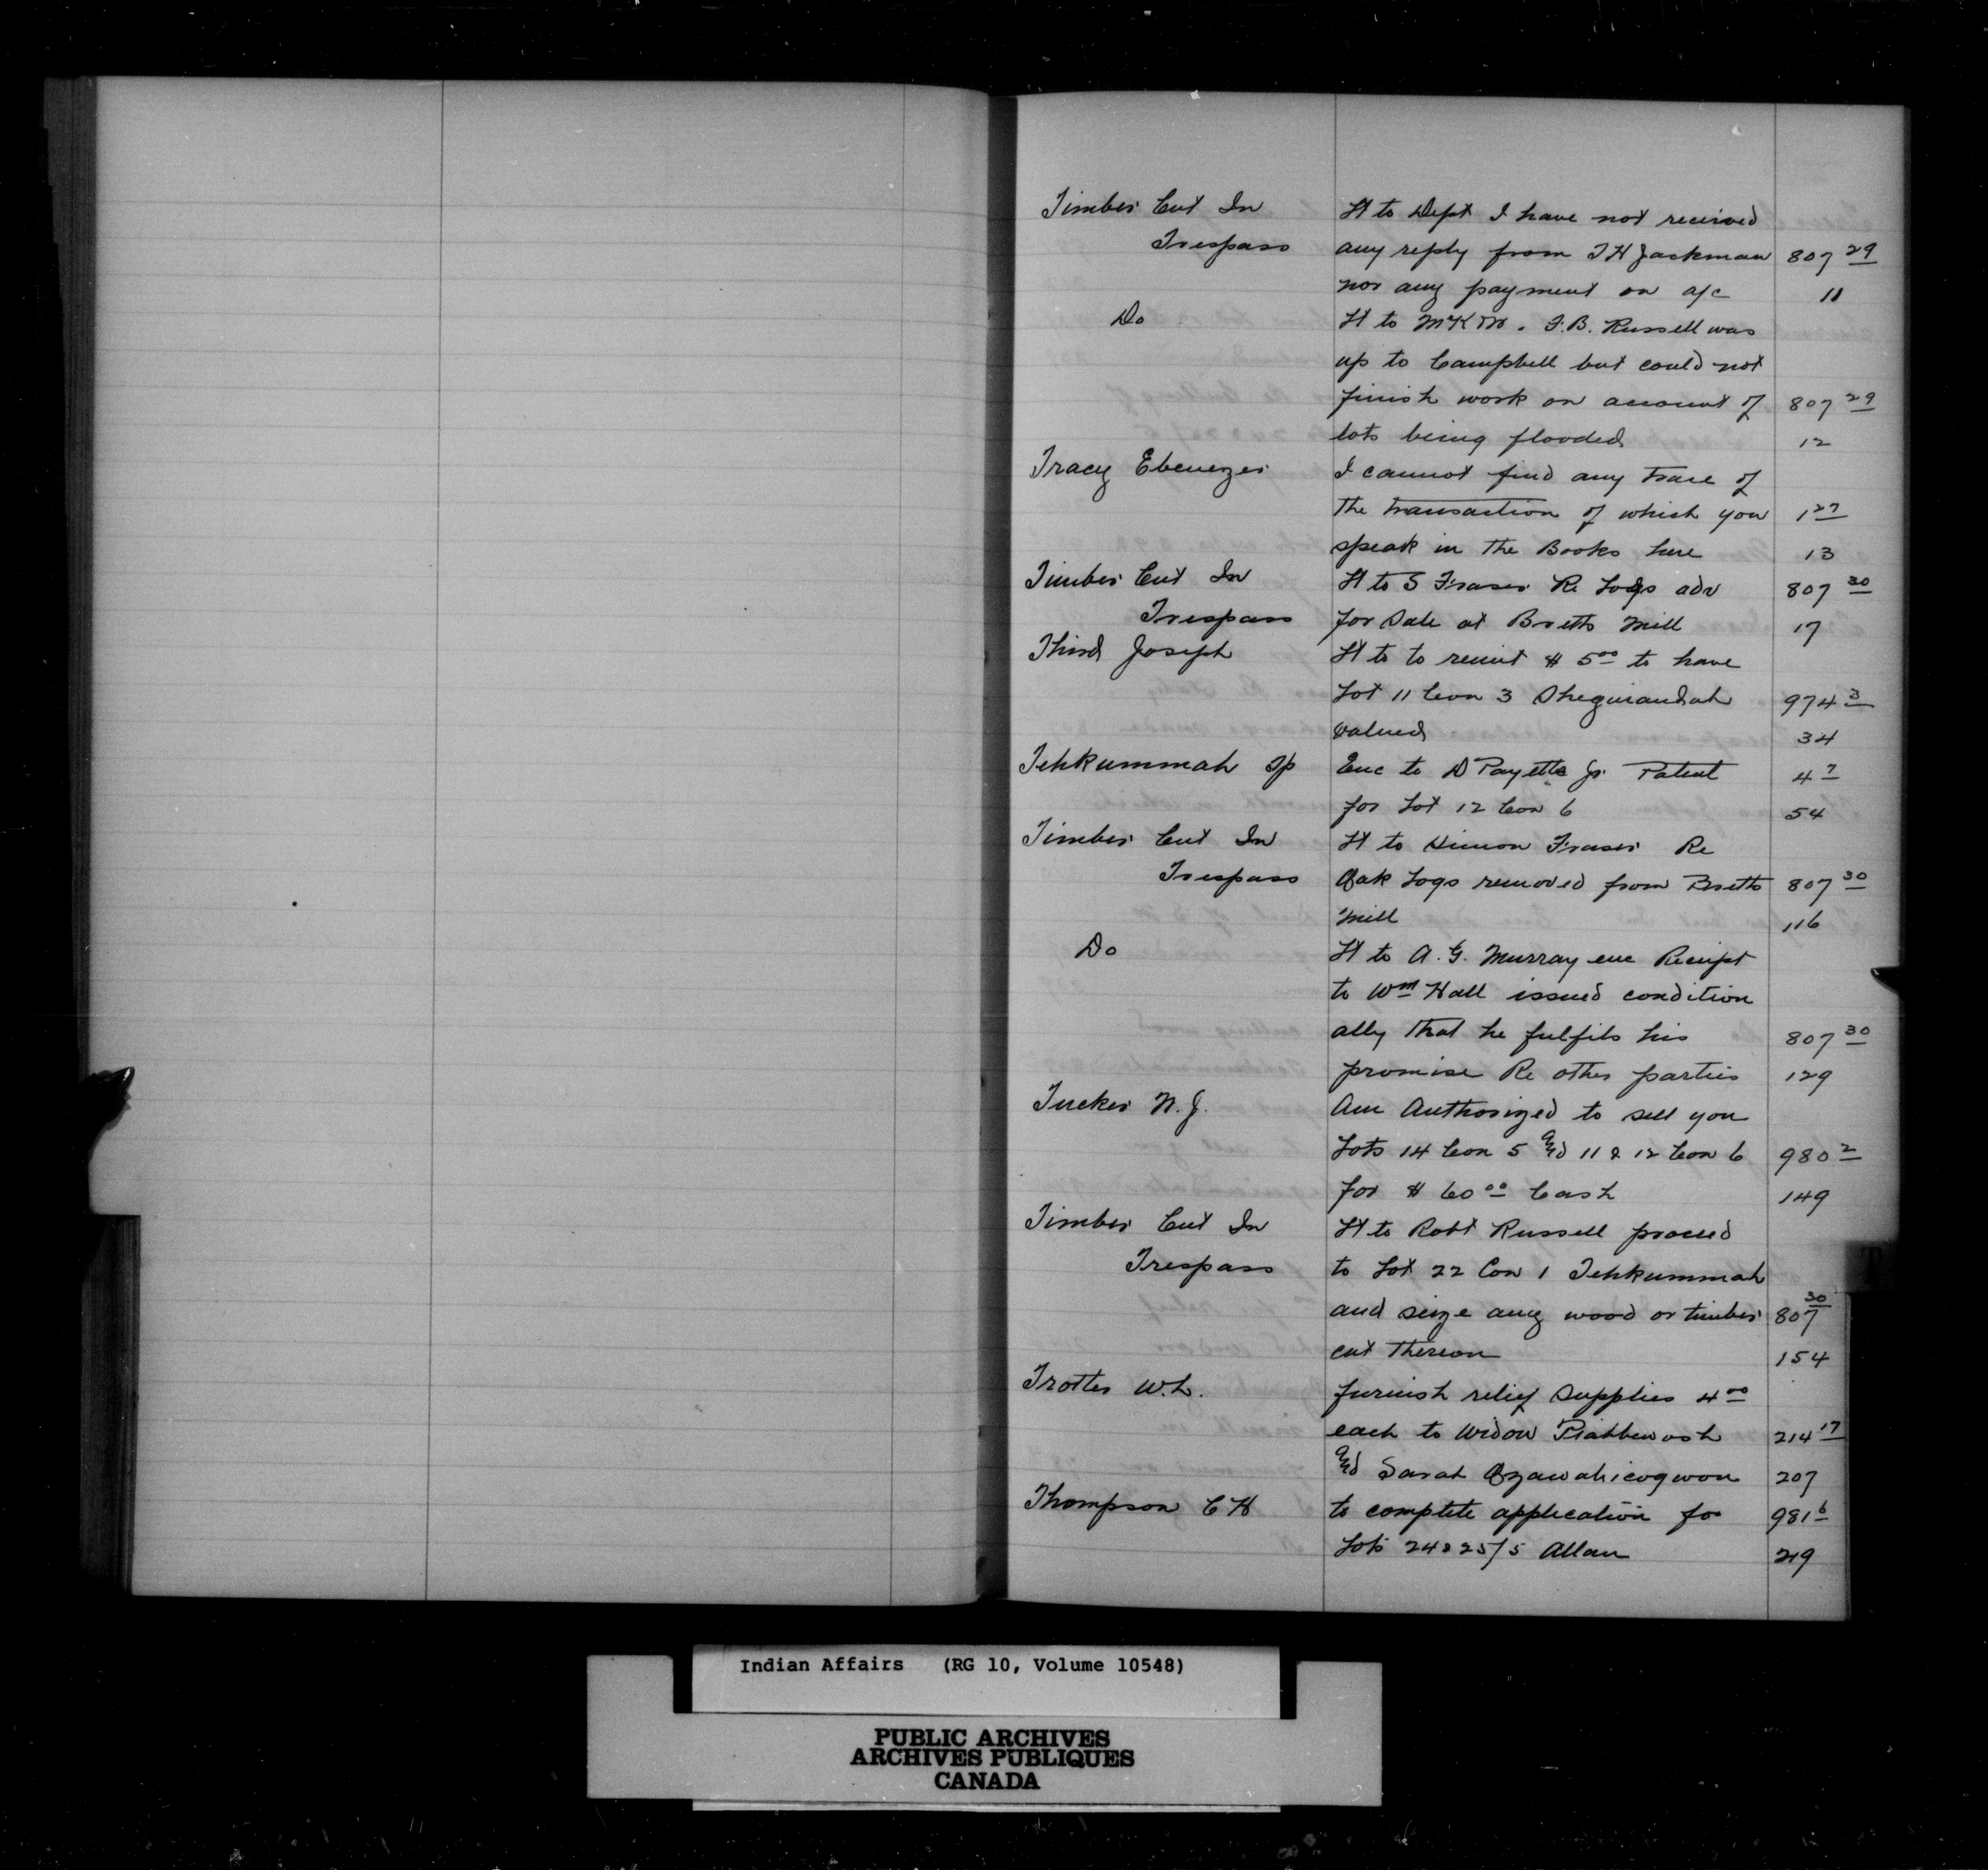 Timber Cut In Lt to Dept I have not received
Trespass any reply from T H Jackman 807 29
nor any payment on a/c 11
Do Lt to McK M. F.B. Russell was
up to Campbell but could not
finish work on account of 807 29
lots being flooded 12
Tracy Ebenezer I cannot find any trace of
the transaction of which you 1 27
speak in the Books here 13
Timber Cut In Lt to S Fraser Re Logs adv 807 30
Trespass for Sale at Bretts Mill 17
Third Joseph Lt to to remit $ 5 00 to have
Lot 11 Con 3 Sheguiandah 974 3
valued 34
Tehkummah Tp Enc to D Payette Jr. Patent 4 7
for Lot 12 Con 6 54
Timber Cut In Lt to Simon Fraser Re
Trespass Oak Logs removed from Bretts 807 30
Mill 116
Do Lt to A. G. Murray enc Receipt
to Wm Hall issued condition
ally that he fulfils his 807 30
promise Re other parties 129
Tucker N. J. Am Authorized to sell you
Lots 14 Con 5 and 11 & 12 Con 6 980 2
for $ 60 00 Cash 149
Timber Cut In Lt to Robt Russell proceed
Trespass to Lot 22 Con 1 Tehkummah
and seize any wood or timber 807 30
cut thereon 154
Trotter W.L. furnish relief Supplies 4 00
each to Widow 214 17
and Sarah 207
Thompson C H to complete application for 981 6
Lots 24 & 25/5 Allan 219
T
Indian Affairs (RG 10, Volume 10548)
PUBLIC ARCHIVES
ARCHIVES PUBLIQUES
CANADA